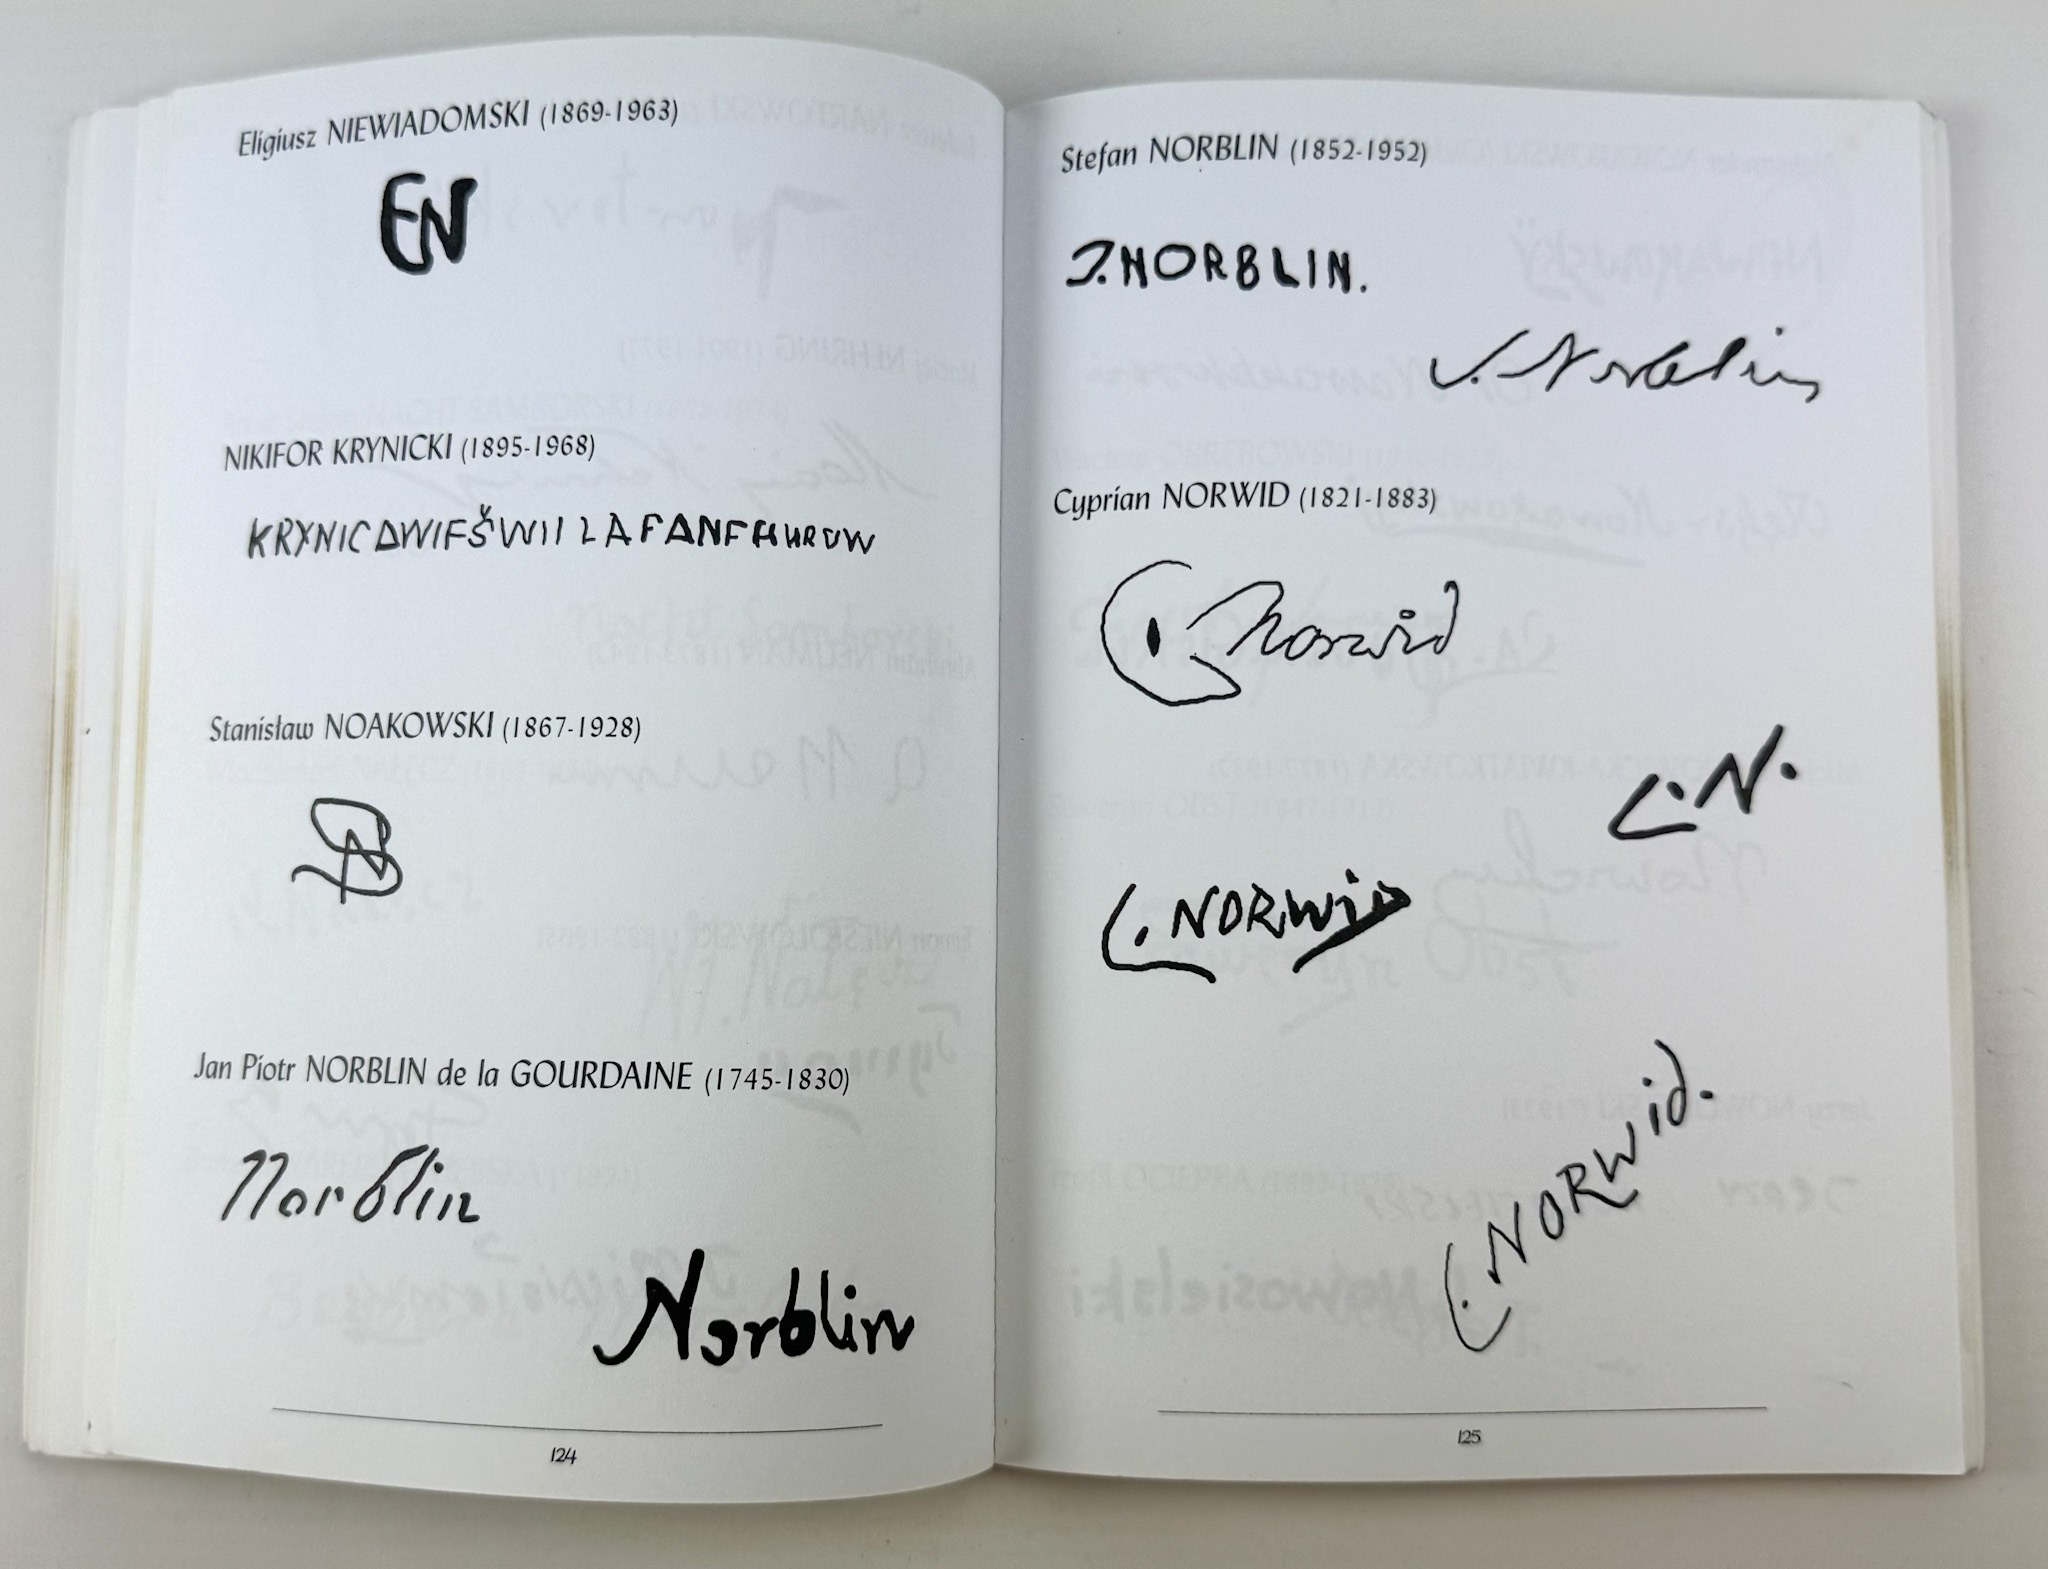 Eligiusz NIEWIADOMSKI (1869-1963)
EN
NIKIFOR KRYNICKI (1895-1968)
KRYNICAWIEŠWIILAFANFHUROW
Stanisław NOAKOWSKI (1867-1928)
SN
Jan Piotr NORBLIN de la GOURDAINE (1745-1830)
Norblin
Norblin
124
Stefan NORBLIN (1852-1952)
J.NORBLIN.
J. Norblin
Cyprian NORWID (1821-1883)
C Norwid
C.N.
C.NORWID
C.NORWid.
125